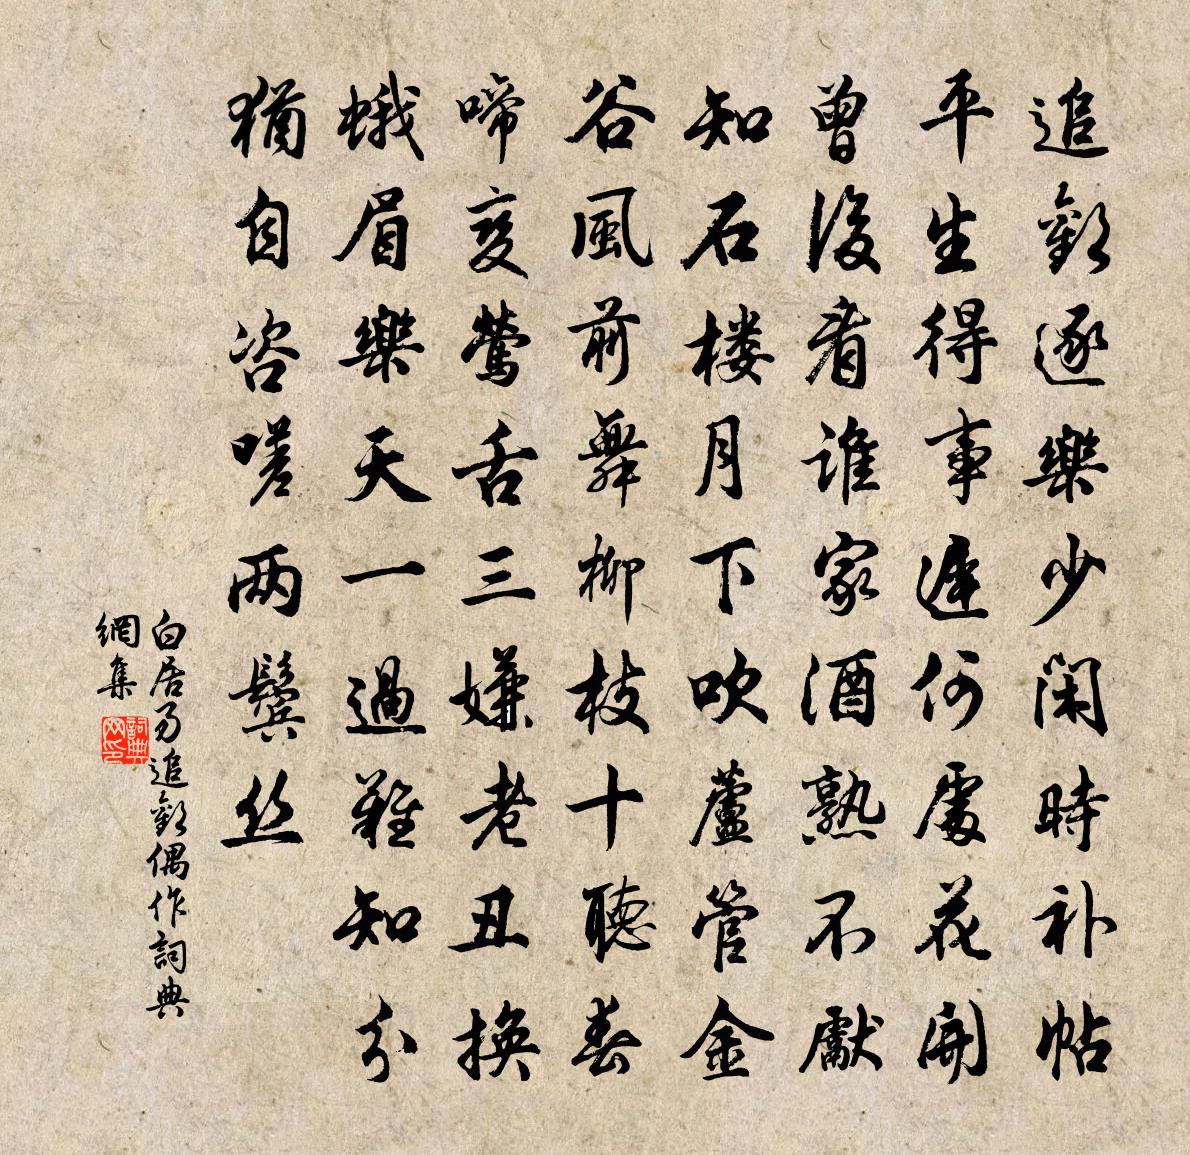 追歡逐樂少閑時补帖
平生得事遲何處花開
曾後看誰家酒熟不獻
知石楼月下吹蘆管金
谷風前舞柳枝十聽春
啼変鶯舌三嫌老丑换
蛾眉樂天一過難知分
猶自咨嗟两鬓丝
白居易追歡偶作詞典
網集
詞典
网印